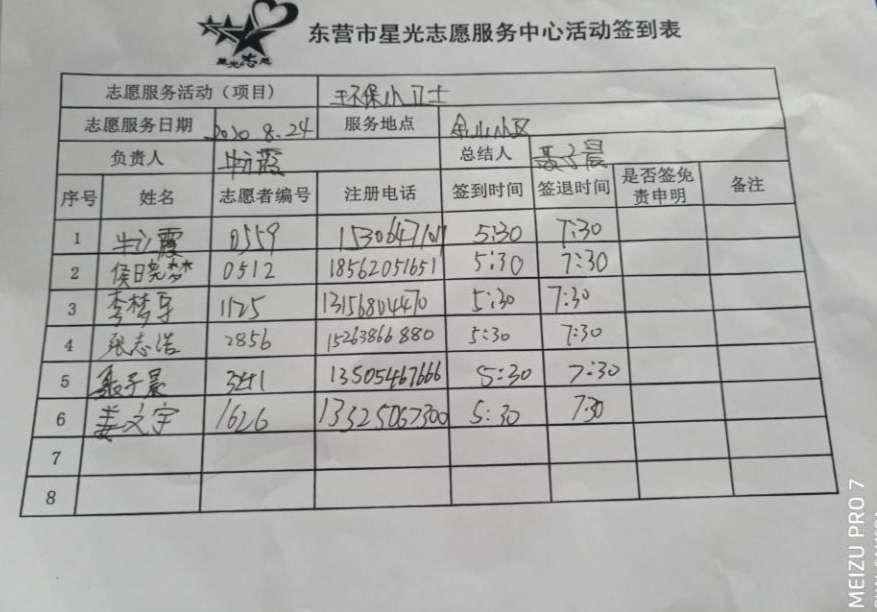 星光志愿
东营市星光志愿服务中心活动签到表
志愿服务活动（项目） 环保小卫士
志愿服务日期 2020 8.24 服务地点 金山小区
负责人 牛立霞 总结人 聂子晨
序号 姓名 志愿者编号 注册电话 签到时间 签退时间 是否签免责申明 备注
1 牛立霞 0559 5:30 7:30
2 侯晓梦 0512 18562051651 5:30 7:30
3 李梦 1125 13156804470 5:30 7:30
4 张志浩 2856 15263866880 5:30 7:30
5 聂子晨 3241 13505467666 5:30 7:30
6 姜文宇 1626 13325067300 5:30 7:30
7
8
MEIZU PRO 7